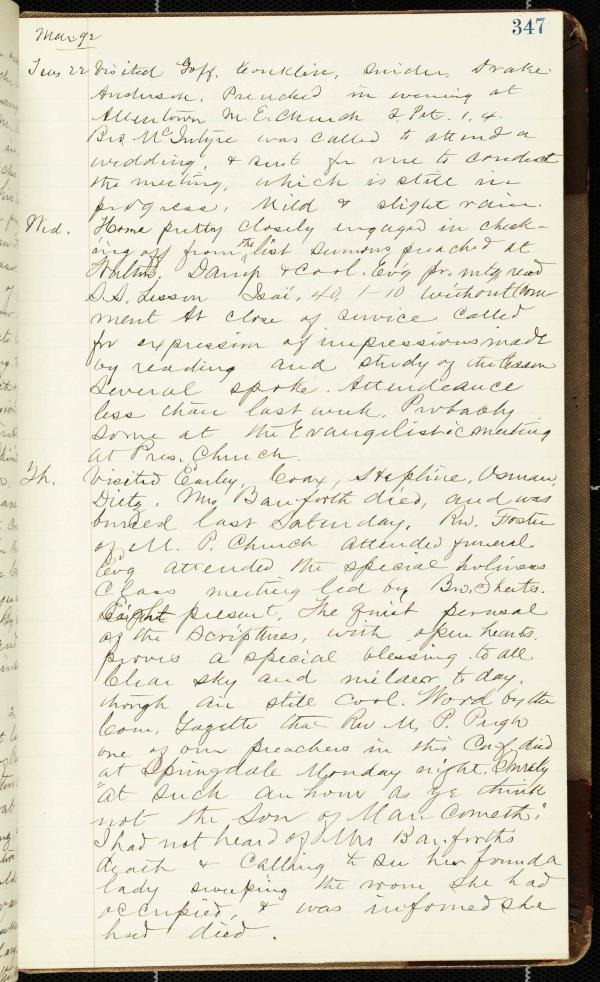 347
Mar 92
Tues 22 Visited Goff, Conklin, Snider, Drake
Anderson. Preached in evening at
Allentown M.E. Church 2 Pet. 1, 4.
Bro. McIntyre was called to attend a
wedding, & sent for me to conduct
the meeting, which is still in
progress. Mild & slight rain.
Wed. Home pretty closely engaged in check-
ing off from the list sermons preached at
Damp & cool. Evg pr. mtg read
S.S. Lesson Isai. 40, 1-10 without com
ment At close of service called
for expression of impressions made
by reading and study of the lesson
Several spoke. Attendeance
less than last week, Probably
some at the Evangelistic meeting
at Pres. Church.
Th. Visited Earley, Coax, Stepline, Osman,
Dietz. Mrs Banforth died, and was
buried last Saturday, Rev. Foster
of M. P. Church attended funeral.
Evg attended the special holiness
class meeting led by Bro. Sheets.
Eight present. The quiet perusal
of the Scriptures, with open hearts,
proves a special blessing to all
Clear sky and milder to day,
though air still cool. Word by the
Com. Gazette that Rev M. P. Pugh
one of our preachers in this Conf. died
at Springdale Monday night. Surely
"at such an hour as ye think
not the Son of Man cometh."
I had not heard of Mrs Banforth's
death & calling to see her found a
lady sweeping the room, she had
occupied, & was informed she
had died.